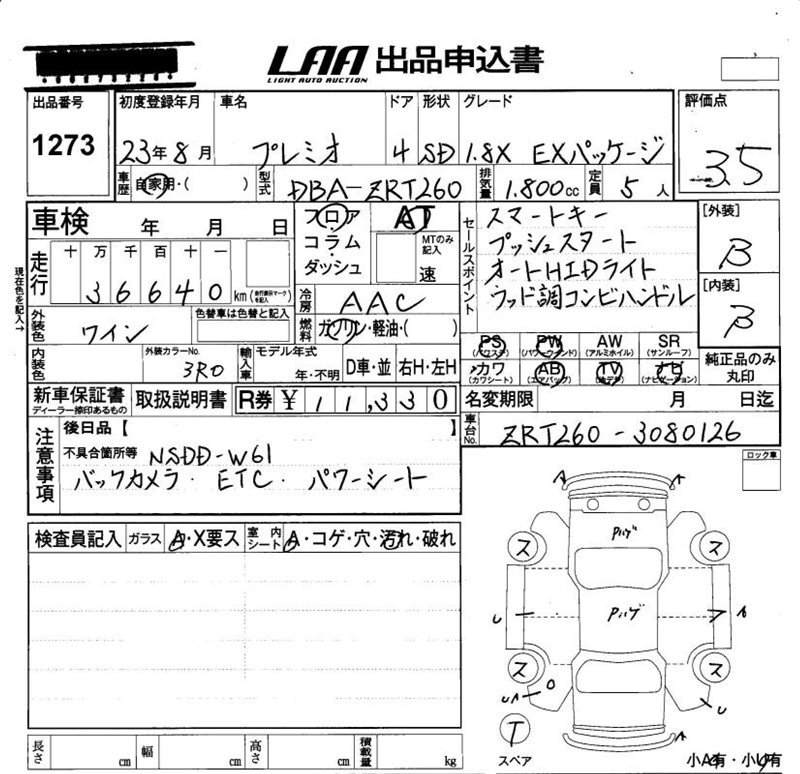 LAA 出品申込書
LIGHT AUTO AUCTION
出品番号 初度登録年月 車名 ドア 形状 グレード 評価点
1273 23年8月 プレミオ 4 SD 1.8X EXパッケージ 3.5
車歴 自家用・( ) 型式 DBA-ZRT260 排気量 1.800cc 定員 5人
車検 年 月 日 フロア・コラム・ダッシュ AT MTのみ記入 速
走行 十 万 千 百 十 一
3 6 6 4 0 km (走行表示マークを記入)
現在色を記入→
冷房 AAC
外装色 ワイン 色替車は色替と記入 燃料 ガソリン・軽油・( )
内装色 外装カラーNo. 3R0 輸入車 モデル年式 年・不明 D車・並 右H・左H
セールスポイント スマートキー
プッシュスタート
オートHIDライト
ウッド調コンビハンドル
[外装] B
[内装] B
PS (パワステ) PW (パワーウインド) AW (アルミホイル) SR (サンルーフ)
カワ (カワシート) AB (エアバッグ) TV (地デジ) ナビ (ナビゲーション)
純正品のみ丸印
新車保証書 ディーラー捺印あるもの 取扱説明書 R券 ¥ 11,330
名変期限 月 日迄
車台No. ZRT260-3080126
注意事項 後日品【 】
不具合箇所等 NSDD-W61
バックカメラ・ETC・パワーシート
ロック車
検査員記入 ガラス A・X要ス 室内シート A・コゲ・穴・汚れ・破れ
A A
Pハゲ
ス ス
U Pハゲ A
ス ス
UA O U
T スペア
A A
小A有・小U有
長さ cm 幅 cm 高さ cm 積載量 kg